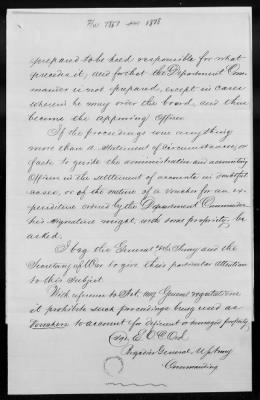 7867 1878
prepared to be held responsible for what
precedes it, and for that the Department Com-
mander is not prepared, except in cases
wherein he may order the board, and thus
become the approving Officer.
If the proceedings were anything
more than a statement of circumstances, or
facts to guide the administrative and accounting
Officers in the settlement of accounts in doubtful
cases, or of the nature of a voucher for an ex-
penditure ordered by the Department Commander
his signature might, with some propriety, be
asked.
I beg the General of the Army and the
Secretary of War to give their particular attention
to this subject.
With reference to General regulations
it prohibits such proceedings being used as
Vouchers to account for deficient or damaged property.
E. O. C. Ord
Brigadier General, U.S. Army
Commanding